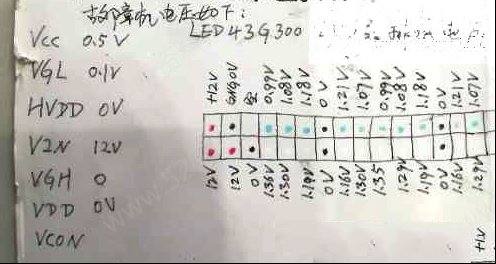 故障机电压如下：
LED43G300
VCC 0.5V
VGL 0.1V
HVDD 0V
VIN 12V
VGH 0
VDD 0V
VCON
H2V GND0V 空 0.99V 1.08V 1.18V 0V 1.21V 1.07V 0.99V 1.08V 1.18V 0V 1.21V 1.07V
12V 12V 0V 1.36V 1.30V 1.19V 0V 1.16V 1.30V 1.35 1.29V 1.19V 0V 1.16V 1.29V